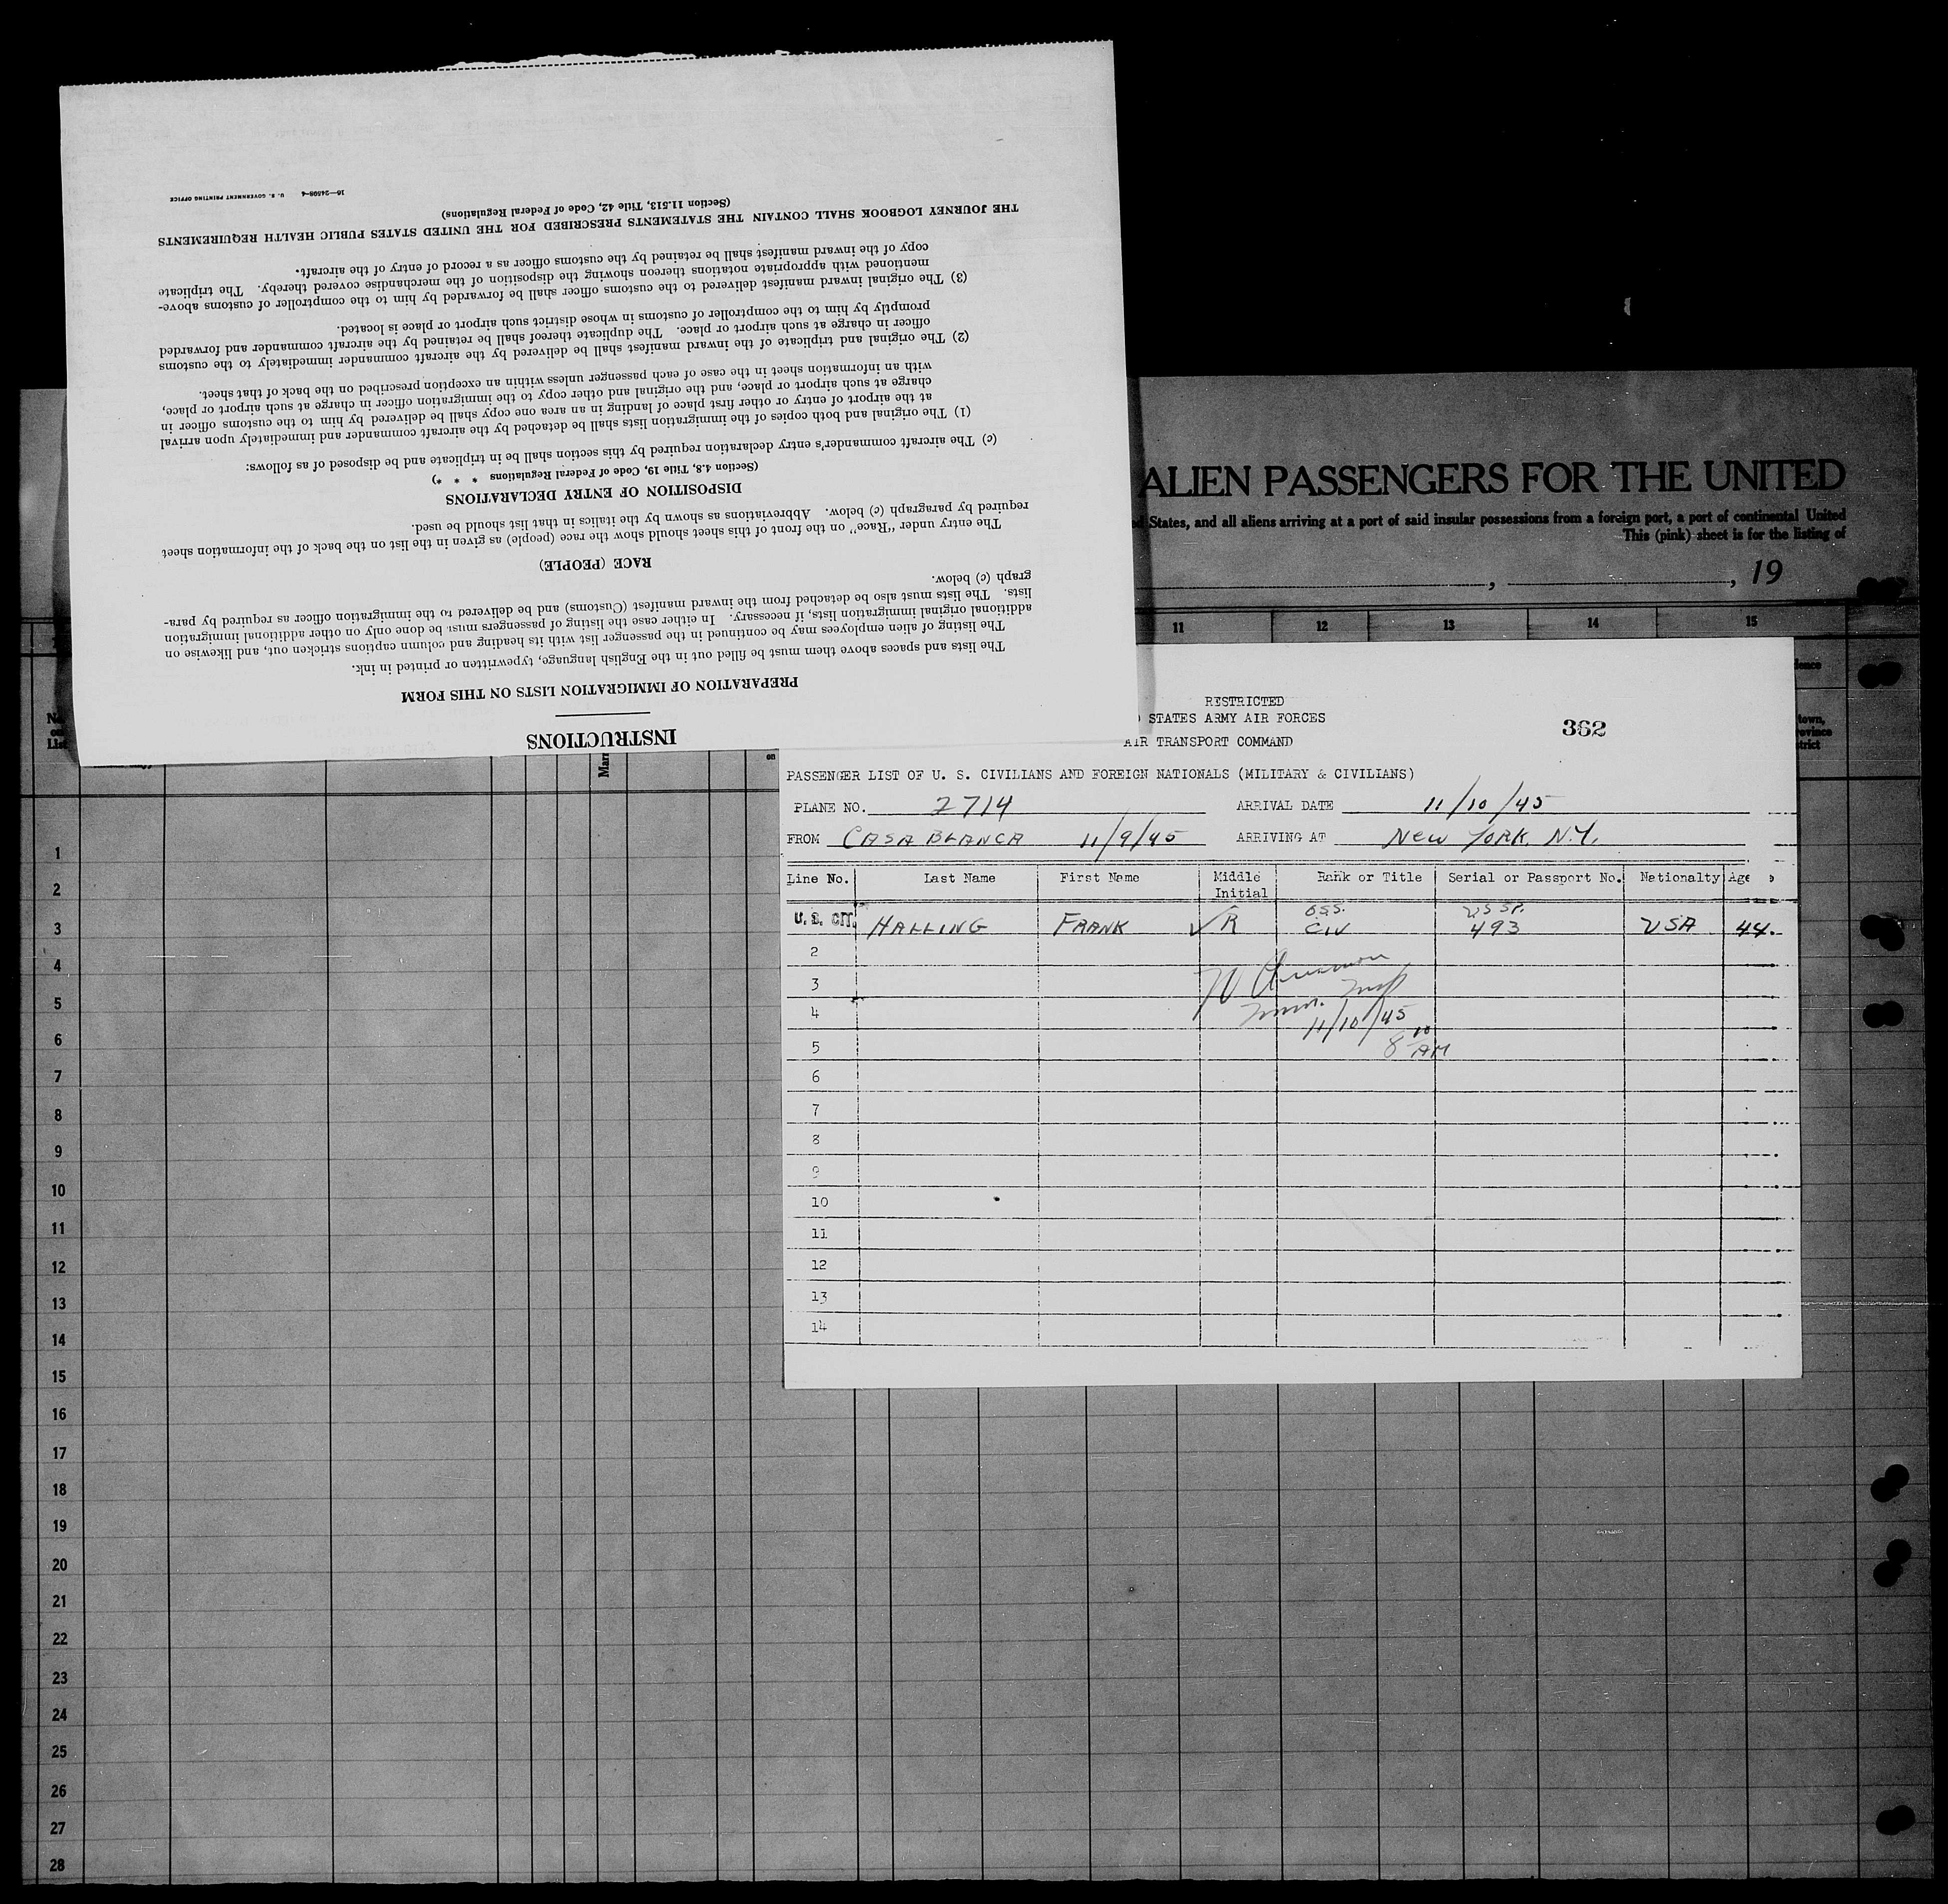 INSTRUCTIONS
PREPARATION OF IMMIGRATION LISTS ON THIS FORM
The lists and spaces above them must be filled out in the English language, typewritten or printed in ink.
The listing of alien employees may be continued in the passenger list with its heading and column captions stricken out, and likewise on
additional original immigration lists, if necessary. In either case the listing of passengers must be done only on other additional immigration
lists. The lists must also be detached from the inward manifest (Customs) and be delivered to the immigration officer as required by para-
graph (c) below.
RACE (PEOPLE)
The entry under "Race" on the front of this sheet should show the race (people) as given in the list on the back of the information sheet
required by paragraph (c) below. Abbreviations as shown by the italics in that list should be used.
DISPOSITION OF ENTRY DECLARATIONS
(Section 4.8, Title 19, Code of Federal Regulations * * *)
(c) The aircraft commander's entry declaration required by this section shall be in triplicate and be disposed of as follows:
(1) The original and both copies of the immigration lists shall be detached by the aircraft commander and immediately upon arrival
at the airport of entry or other first place of landing in an area one copy shall be delivered by him to the customs officer in
charge at such airport or place, and the original and other copy to the immigration officer in charge at such airport or place,
with an information sheet in the case of each passenger unless within an exception prescribed on the back of that sheet.
(2) The original and triplicate of the inward manifest shall be delivered by the aircraft commander immediately to the customs
officer in charge at such airport or place. The duplicate thereof shall be retained by the aircraft commander and forwarded
promptly by him to the comptroller of customs in whose district such airport or place is located.
(3) The original inward manifest delivered to the customs officer shall be forwarded by him to the comptroller of customs above-
mentioned with appropriate notations thereon showing the disposition of the merchandise covered thereby. The triplicate
copy of the inward manifest shall be retained by the customs officer as a record of entry of the aircraft.
THE JOURNEY LOGBOOK SHALL CONTAIN THE STATEMENTS PRESCRIBED FOR THE UNITED STATES PUBLIC HEALTH REQUIREMENTS
(Section 11.513, Title 42, Code of Federal Regulations)
16—24508-4 U. S. GOVERNMENT PRINTING OFFICE
ALIEN PASSENGERS FOR THE UNITED
ed States, and all aliens arriving at a port of said insular possessions from a foreign port, a port of continental United
This (pink) sheet is for the listing of
, , 19
11 12 13 14 15
RESTRICTED
STATES ARMY AIR FORCES
362
AIR TRANSPORT COMMAND
PASSENGER LIST OF U. S. CIVILIANS AND FOREIGN NATIONALS (MILITARY & CIVILIANS)
PLANE NO. 2714 ARRIVAL DATE 11/10/45
FROM CASABLANCA 11/9/45 ARRIVING AT NEW YORK. N.Y.
Line No. Last Name First Name Middle Initial Rank or Title Serial or Passport No. Nationalty Age
U. S. CIT. HALLING FRANK ✓ R O.S.S. CIV US SP. 493 USA 44.
2
3
4
11/10/45
5
8 10 AM
6
7
8
9
10
11
12
13
14
No. on List
Marr
on
town,
province
strict
1
2
3
4
5
6
7
8
9
10
11
12
13
14
15
16
17
18
19
20
21
22
23
24
25
26
27
28